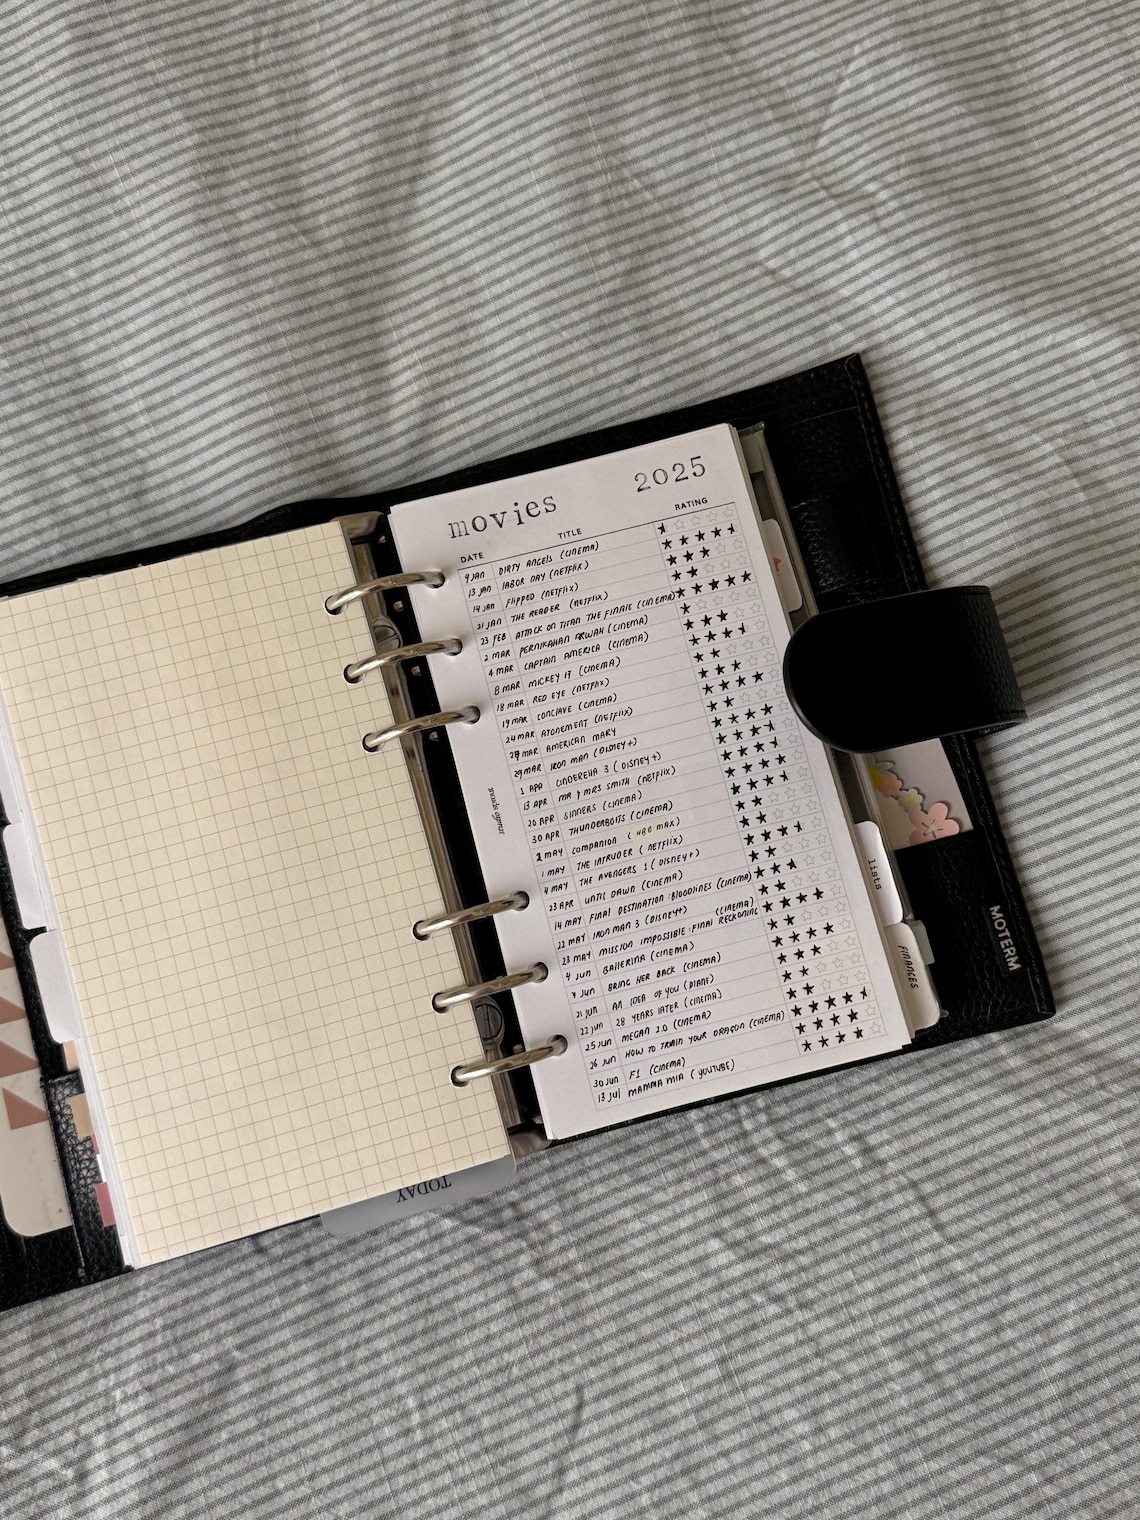 movies 2025
DATE TITLE RATING
9 JAN DIRTY ANGELS (CINEMA)
13 JAN LABOR DAY (NETFLIX)
14 JAN FLIPPED (NETFLIX)
21 JAN THE READER (NETFLIX)
23 FEB ATTACK ON TITAN THE FINALE (CINEMA)
2 MAR PERNIKAHAN ARWAH (CINEMA)
4 MAR CAPTAIN AMERICA (CINEMA)
8 MAR MICKEY 17 (CINEMA)
18 MAR RED EYE (NETFLIX)
19 MAR CONCLAVE (CINEMA)
24 MAR ATONEMENT (NETFLIX)
MAR AMERICAN MARY
29 MAR IRON MAN (DISNEY+)
1 APR CINDERELLA 3 (DISNEY+)
13 APR MR & MRS SMITH (NETFLIX)
20 APR SINNERS (CINEMA)
30 APR THUNDERBOLTS (CINEMA)
2 MAY COMPANION (HBO MAX)
1 MAY THE INTRUDER (NETFLIX)
4 MAY THE AVENGERS 1 (DISNEY+)
23 APR UNTIL DAWN (CINEMA)
14 MAY FINAL DESTINATION: BLOODLINES (CINEMA)
22 MAY IRON MAN 3 (DISNEY+)
23 MAY MISSION IMPOSSIBLE: FINAL RECKONING (CINEMA)
4 JUN BALLERINA (CINEMA)
JUN BRING HER BACK (CINEMA)
21 JUN AN IDEA OF YOU (PLANE)
22 JUN 28 YEARS LATER (CINEMA)
25 JUN MEGAN 2.0 (CINEMA)
26 JUN HOW TO TRAIN YOUR DRAGON (CINEMA)
30 JUN F1 (CINEMA)
13 JUL MAMMA MIA (YOUTUBE)
lists
FINANCES
MOTERM
TODAY